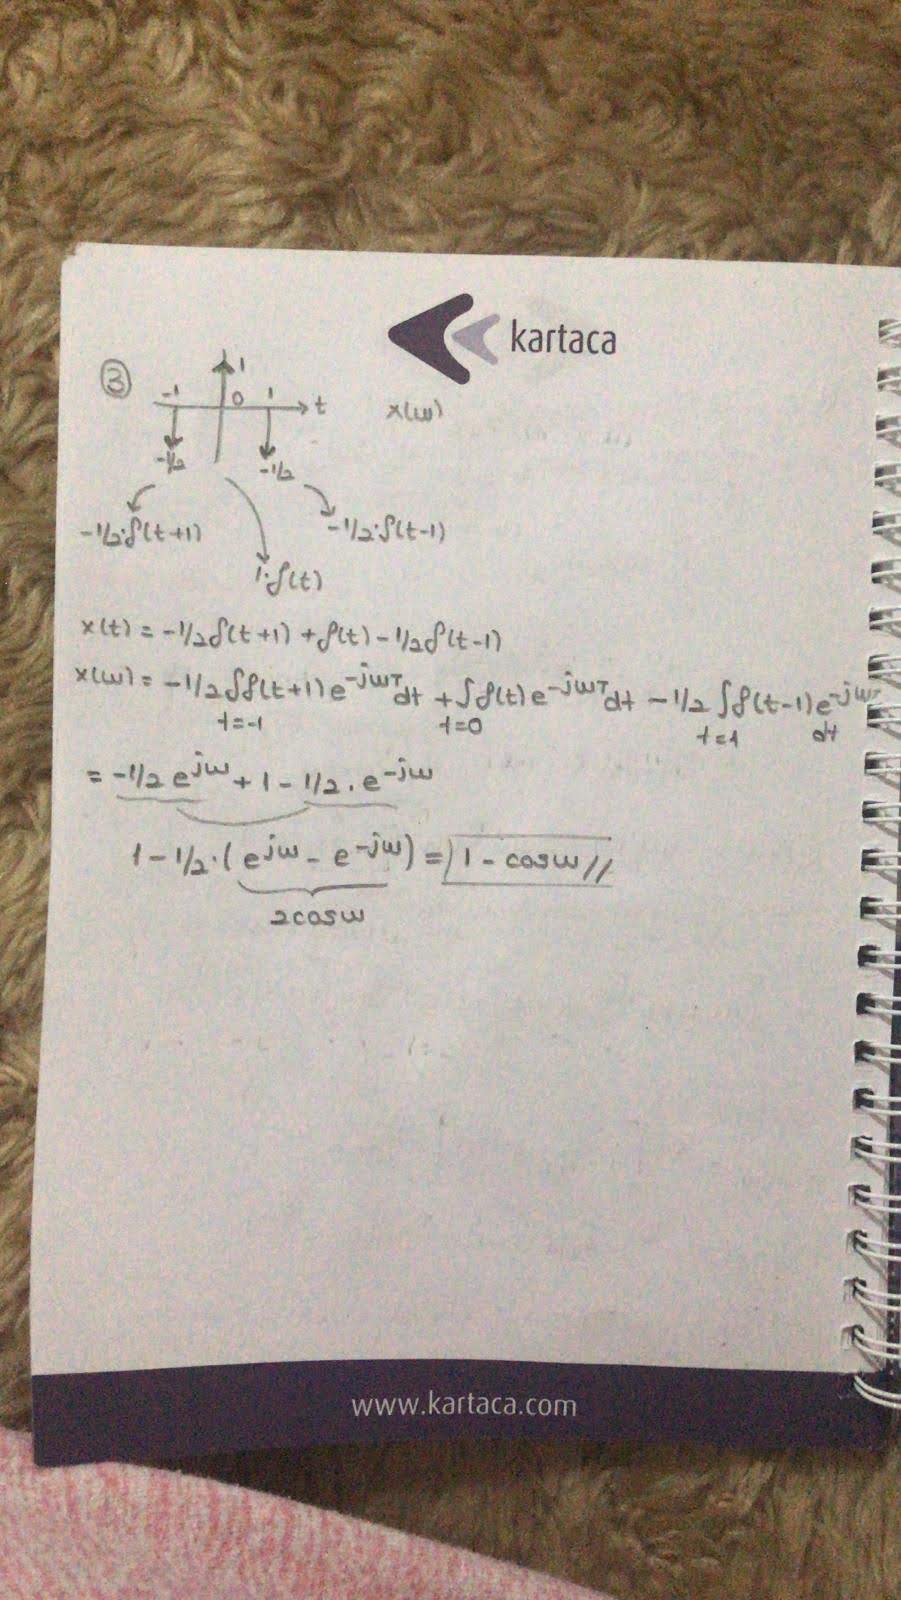 kartaca
③
1
-1 0 1 t
x(ω)
-1/2 -1/2
-1/2·δ(t+1) -1/2·δ(t-1)
1·δ(t)
x(t) = -1/2 δ(t+1) + δ(t) - 1/2 δ(t-1)
x(ω) = -1/2 ∫δ(t+1) e^-jωT dt + ∫δ(t) e^-jωT dt - 1/2 ∫δ(t-1) e^-jωT dt
t=-1 t=0 t=1
= -1/2 e^jω + 1 - 1/2 . e^-jω
1 - 1/2 · (e^jω - e^-jω) = 1 - cosω //
2cosω
www.kartaca.com